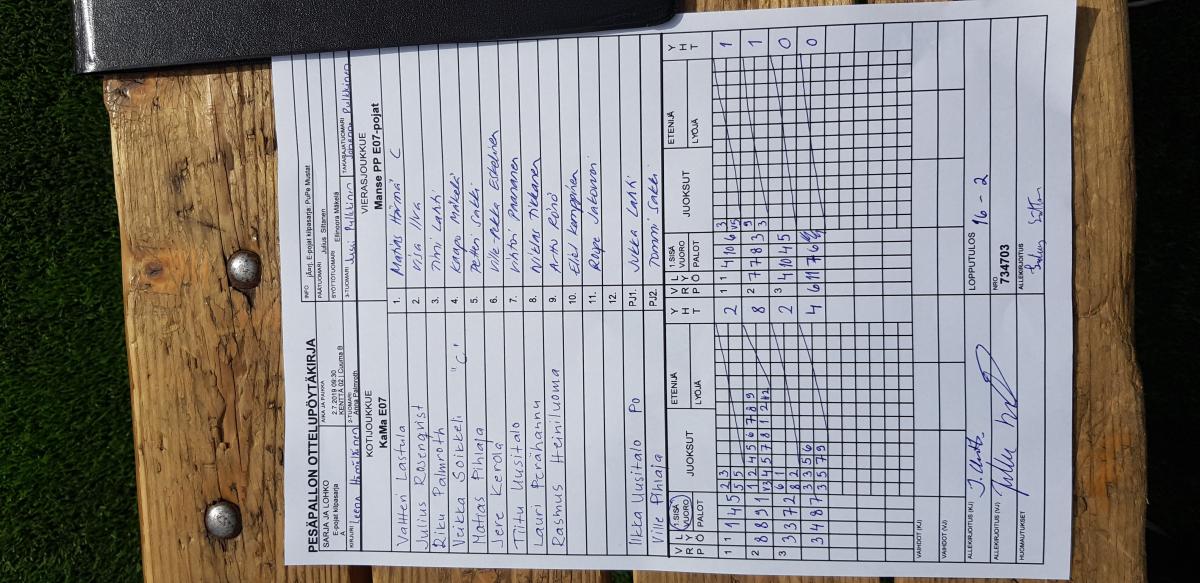 PESÄPALLON OTTELUPÖYTÄKIRJA
SARJA JA LOHKO
E-pojat kilpasarja
A
AIKA JA PAIKKA
2.7.2019 09:30
KENTTÄ 02 | Cuuma B
INFO
jÄrj. E-pojat kilpasarja: PuPe Mustat
PÄÄTUOMARI Julius Siltanen
SYÖTTÖTUOMARI Elinoora Mäkelä
KIRJURI Leena
2-TUOMARI Anna Palmroth
3-TUOMARI Jussi Pulkkinen
TAKARAJATUOMARI Joneppi Pulkkinen
KOTIJOUKKUE
KaMa E07
VIERASJOUKKUE
Manse PP E07-pojat
Valtteri Lastula 1. Matias Härmä C
Julius Rosenqvist 2. Visa Ilva
Riku Palmroth 3. Tihvi Lahti
Veikka Soikkeli "C" 4. Kaapo Mäkelä
Matias Pihlaja 5. Petteri Sakki
Jere Kerola 6. Ville-Pekka Eskelinen
Tiitu Uusitalo 7. Vihtori Paananen
Lauri Perähannu 8. Niklas Tikkanen
Rasmus Heiniluoma 9. Arttu Rönö
10. Eliel Kamppinen
11. Roope Jakovuori
12.
Ilkka Uusitalo PO PJ1. Jukka Lahti
Ville Pihlaja PJ2. Tommi Sakki
V P L R Ö Y 1.SISÄ VUORO PALOT JUOKSUT ETENIJÄ LYÖJÄ Y H T
V P L R Ö Y 1.SISÄ VUORO PALOT JUOKSUT ETENIJÄ LYÖJÄ Y H T
1 1 1 4 5 2 3 2 1 1 4 10 6 3 1
5 5
2 8 8 9 1 1 2 4 5 6 7 8 9 8 2 7 7 8 3 9 1
3 4 5 7 8 1 2
3 3 3 7 2 6 1 2 3 4 10 4 5 0
8 2
3 4 8 7 3 3 5 6 4 6 11 7 6 0
3 5 7 9
VAIHDOT (KJ)
VAIHDOT (VJ)
ALLEKIRJOITUS (KJ)
LOPPUTULOS 16 - 2
ALLEKIRJOITUS (VJ)
NRO
734703
HUOMAUTUKSET
ALLEKIRJOITUS